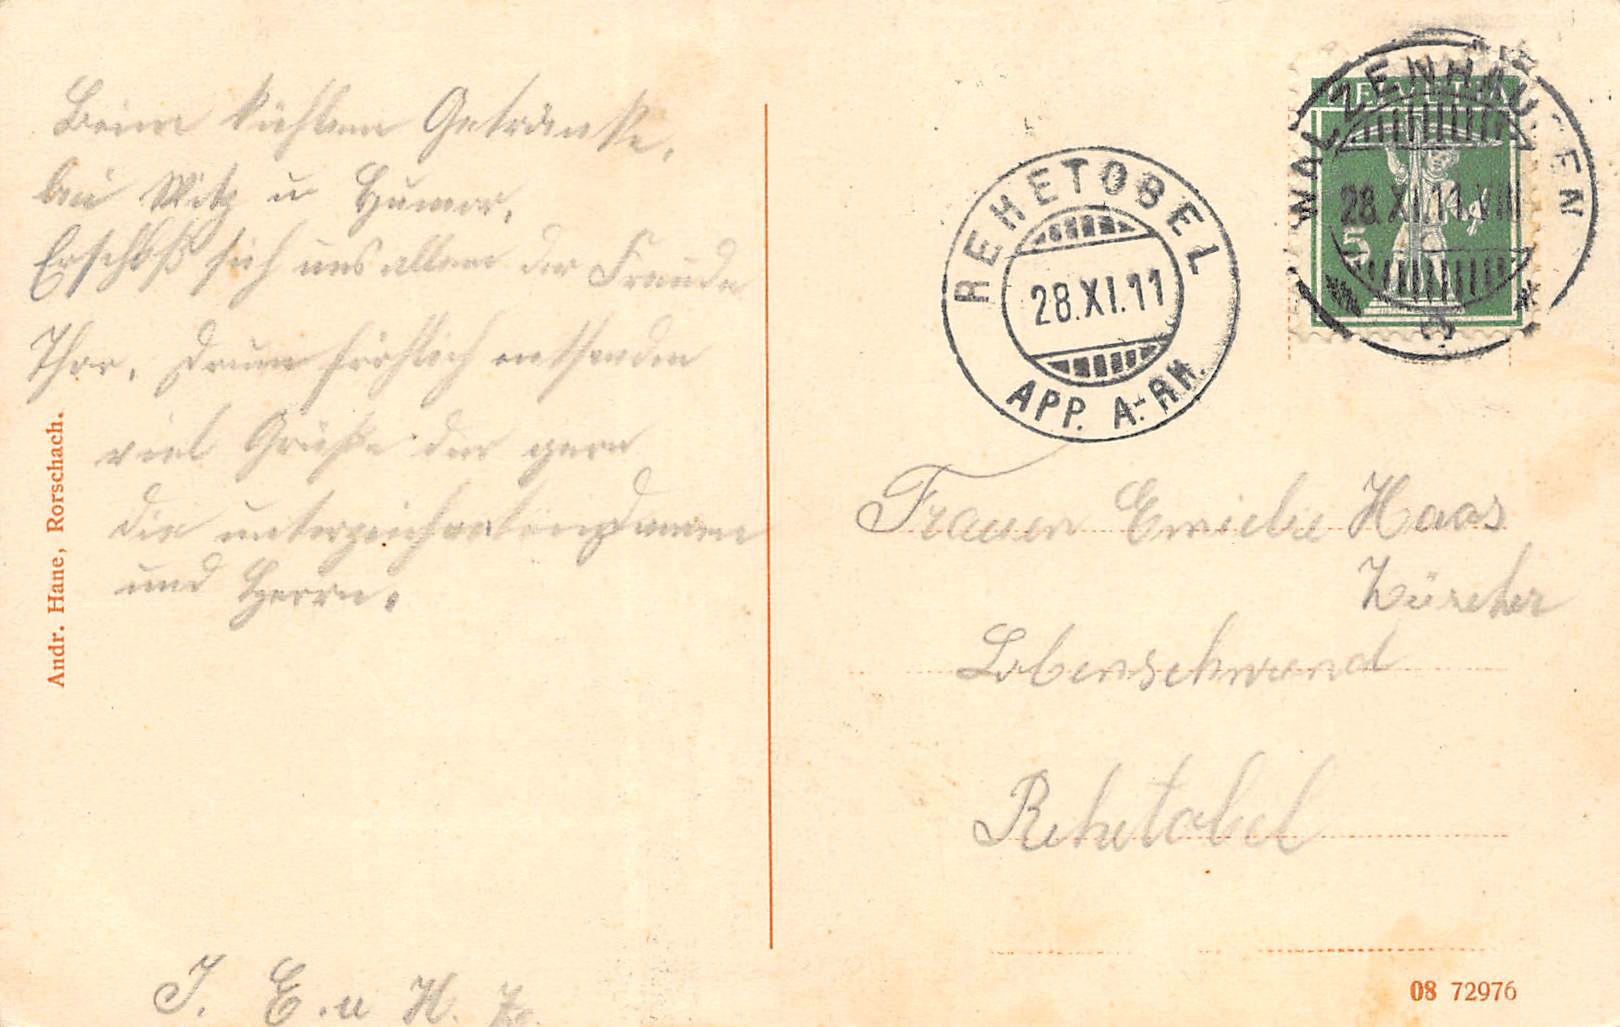 Beim kühlem Getränke,
bei Witz u Humor,
Erschloß sich uns allem der Freude
Thor. Drum fröhlich entsenden
viel Grüße der gern
die unterzeichneten Damen
und Herrn.
J. E. u H. Z.
Andr. Hane, Rorschach.
REHETOBEL
28.XI.11
APP. A.-RH.
WALZENHAUSEN
28.XI.11.VIII
HELVETIA
5
Frauen Emielie Haas
Zürcher
Lobenschwend
Rehetobel
08 72976